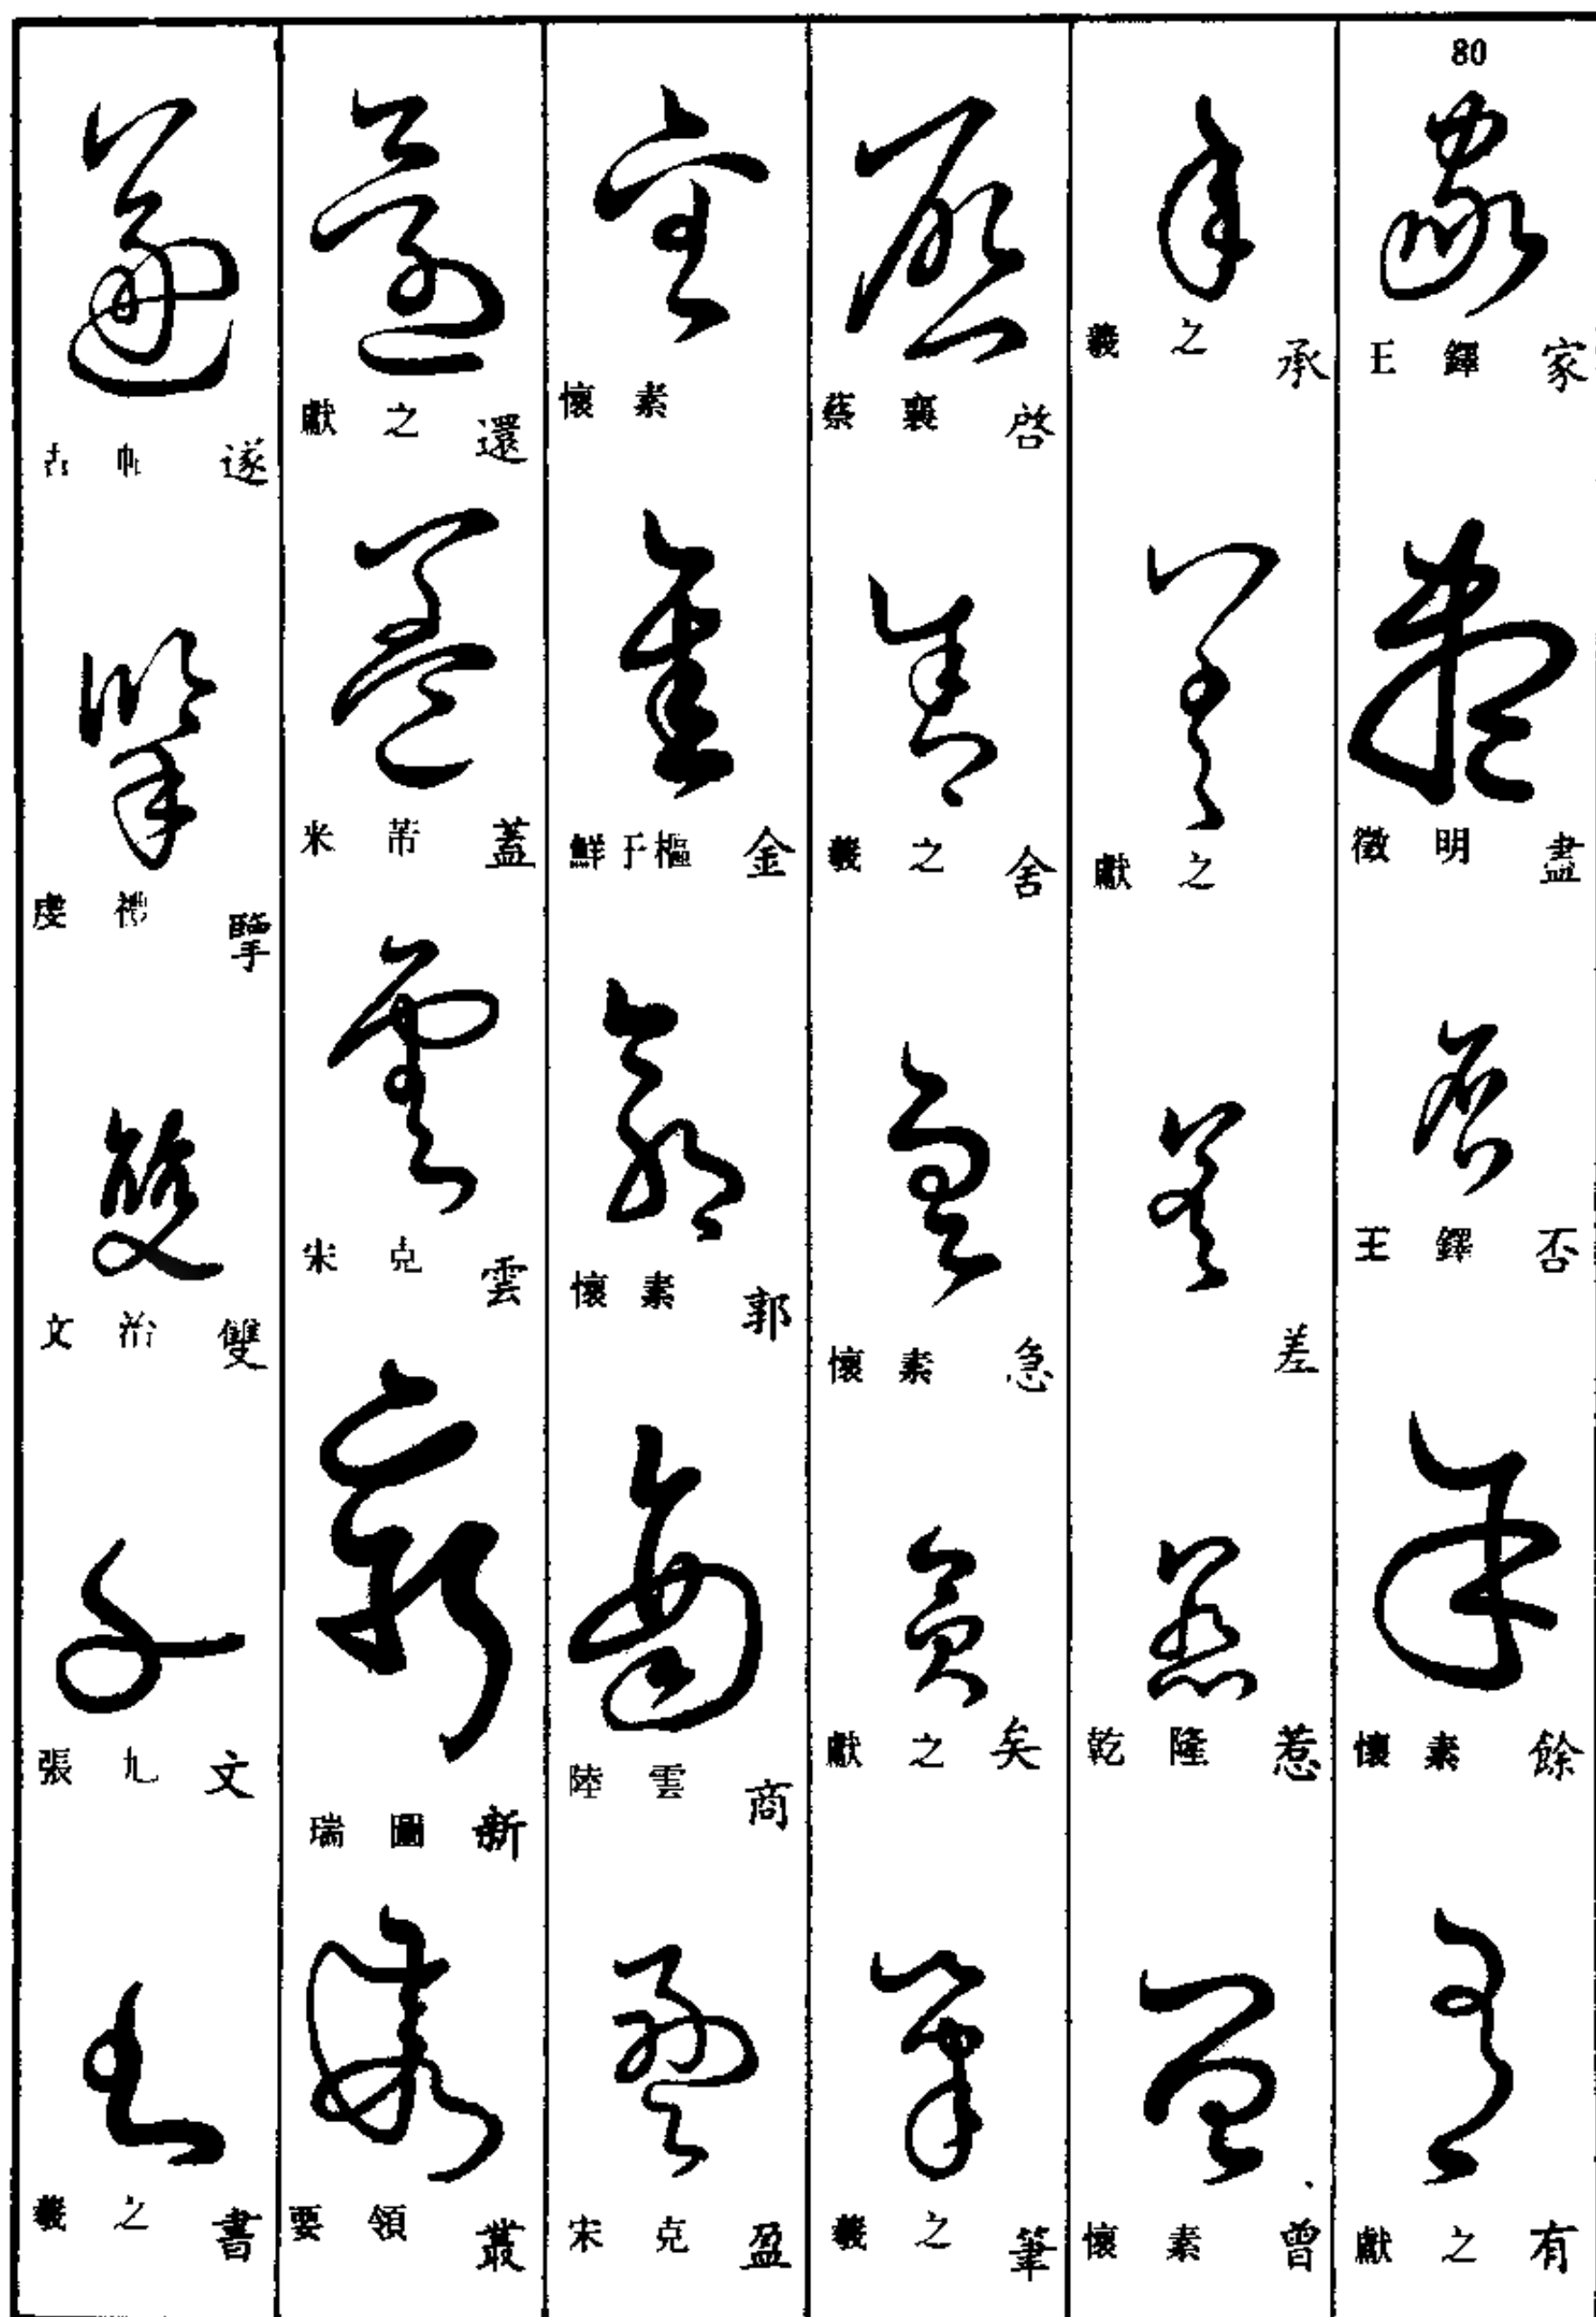 80
王鐸 家
徵明 盡
王鐸 否
懷素 餘
獻之 有
羲之 承
獻之
差
乾隆 惹
懷素 曾
蔡襄 啓
羲之 舍
懷素 急
獻之 矣
羲之 筆
懷素
鮮于樞 金
懷素 郭
陸雲 商
宋克 盈
獻之 還
米芾 蓋
宋克 雲
瑞圖 新
要領 叢
古帖 遂
虔禮 擥
文治 雙
張 文
羲之 書